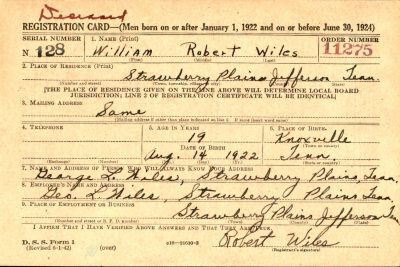 Deceased
REGISTRATION CARD—(Men born on or after January 1, 1922 and on or before June 30, 1924)
SERIAL NUMBER 1. NAME (Print) ORDER NUMBER
N 128 William Robert Wiles 11275
(First) (Middle) (Last)
2. PLACE OF RESIDENCE (Print)
Strawberry Plains Jefferson Tenn.
(Number and street) (Town, township, village, or city) (County) (State)
[THE PLACE OF RESIDENCE GIVEN ON THE LINE ABOVE WILL DETERMINE LOCAL BOARD
JURISDICTION; LINE 2 OF REGISTRATION CERTIFICATE WILL BE IDENTICAL]
3. MAILING ADDRESS
Same
[Mailing address if other than place indicated on line 2. If same insert word same]
4. TELEPHONE 5. AGE IN YEARS 6. PLACE OF BIRTH
19 Knoxville
DATE OF BIRTH (Town or county)
Aug. 14 1922 Tenn.
(Exchange) (Number) (Mo.) (Day) (Yr.) (State or country)
7. NAME AND ADDRESS OF PERSON WHO WILL ALWAYS KNOW YOUR ADDRESS
George L. Wiles, Strawberry Plains, Tenn.
8. EMPLOYER'S NAME AND ADDRESS
Geo. L. Wiles, Strawberry Plains Tenn.
9. PLACE OF EMPLOYMENT OR BUSINESS
Strawberry Plains Jefferson Tenn
(Number and street or R. F. D. number) (Town) (County) (State)
I AFFIRM THAT I HAVE VERIFIED ABOVE ANSWERS AND THAT THEY ARE TRUE.
D. S. S. Form 1
(Revised 6-1-42) (over) Robert Wiles